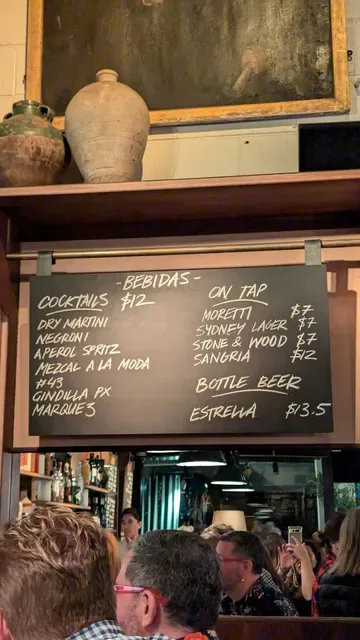 -BEBIDAS-
COCKTAILS $12
DRY MARTINI
NEGRONI
APEROL SPRITZ
MEZCAL A LA MODA
#43
GINDILLA PX
MARQUES
ON TAP
MORETTI $7
SYDNEY LAGER $7
STONE & WOOD $7
SANGRIA $12
BOTTLE BEER
ESTRELLA $13.5